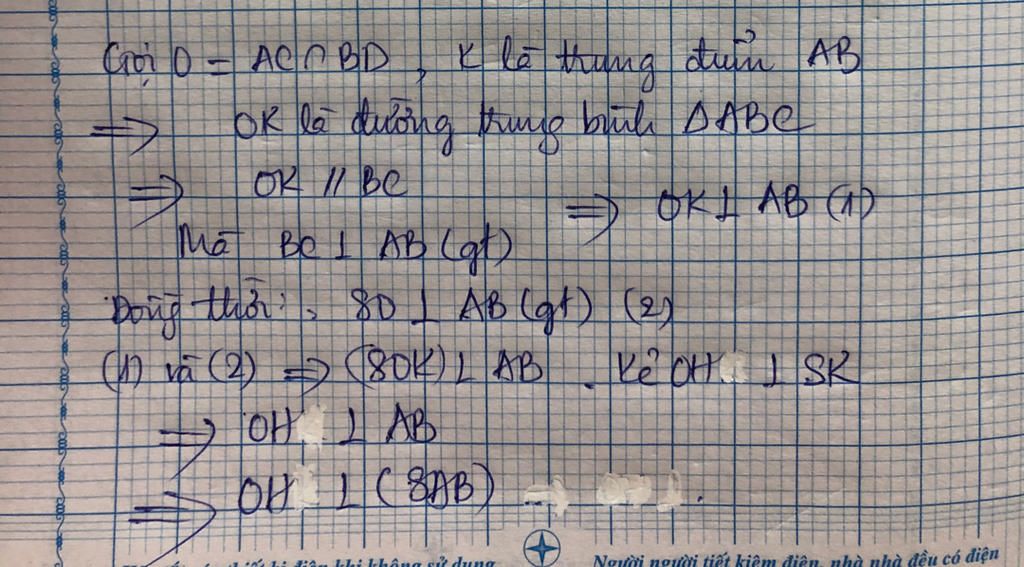 Gọi O = AC ∩ BD, K là trung điểm AB
⇒ OK là đường trung bình ΔABC
⇒ OK // BC
⇒ OK ⊥ AB (1)
Mà BC ⊥ AB (gt)
Đồng thời: SO ⊥ AB (gt) (2)
(1) và (2) ⇒ (SOK) ⊥ AB. Kẻ OH ⊥ SK
⇒ OH ⊥ AB
⇒ OH ⊥ (SAB)
thiết bị điện khi không sử dụng
Người người tiết kiệm điện, nhà nhà đều có điện